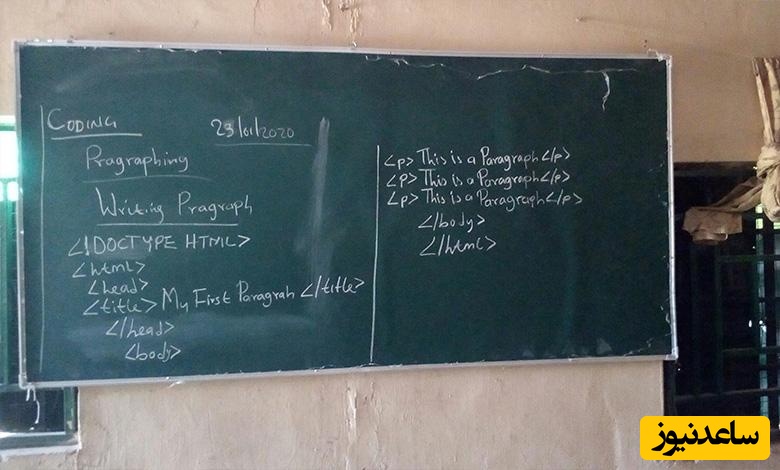 CODING
23/01/2020
Pragraphing
Writing Pragraph
<!DOCTYPE HTML>
<html>
<head>
<title> My First Paragrah </title>
</head>
<body>
<p> This is a Paragraph </p>
<p> This is a Paragraph </p>
<p> This is a Paragraph </p>
</body>
</html>
ساعدنیوز